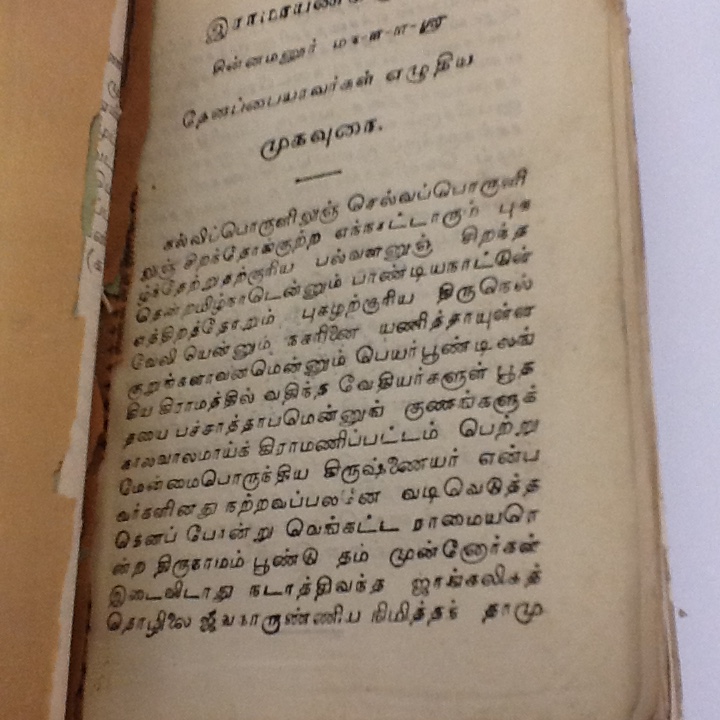 இராமாயண
சின்னமனூர் ம-௱-௱-ஸ்ரீ
தேனப்பையரவர்கள் எழுதிய
முகவுரை.
கல்விப்பொருளினுஞ் செல்வப்பொருளி
னுஞ் சிறந்தோங்குற்ற எந்நாட்டாரும் புக
ழ்ந்தேற்றுதற்குரிய பல்வளனுஞ் சிறந்த
தென்றமிழ்நாடென்னும் பாண்டியநாட்டின்
எத்திறத்தோறும் புகழற்குரிய திருநெல்
வேலி யென்னும் நகரினை யணித்தாயுள்ள
குறுங்களாவனமென்னும் பெயர்பூண்டிலங்
கிய கிராமத்தில் வதிந்த வேதியர்களுள் பூத
தயை பச்சாத்தாபமென்னுங் குணங்களுக்
காலவாலமாய்க் கிராமணிப்பட்டம் பெற்று
மேன்மைபொருந்திய கிருஷ்ணையர் என்ப
வர்களினது நற்றவப்பலனை வடிவெடுத்த
தெனப் போன்று வெங்கட்ட ராமையரெ
ன்ற திருநாமம் பூண்டு தம் முன்னோர்கள்
இடைவிடாது நடாத்திவந்த ஜாங்கலிகத்
தொழிலை ஜீவகாருண்ணிய நிமித்தந் தாமு